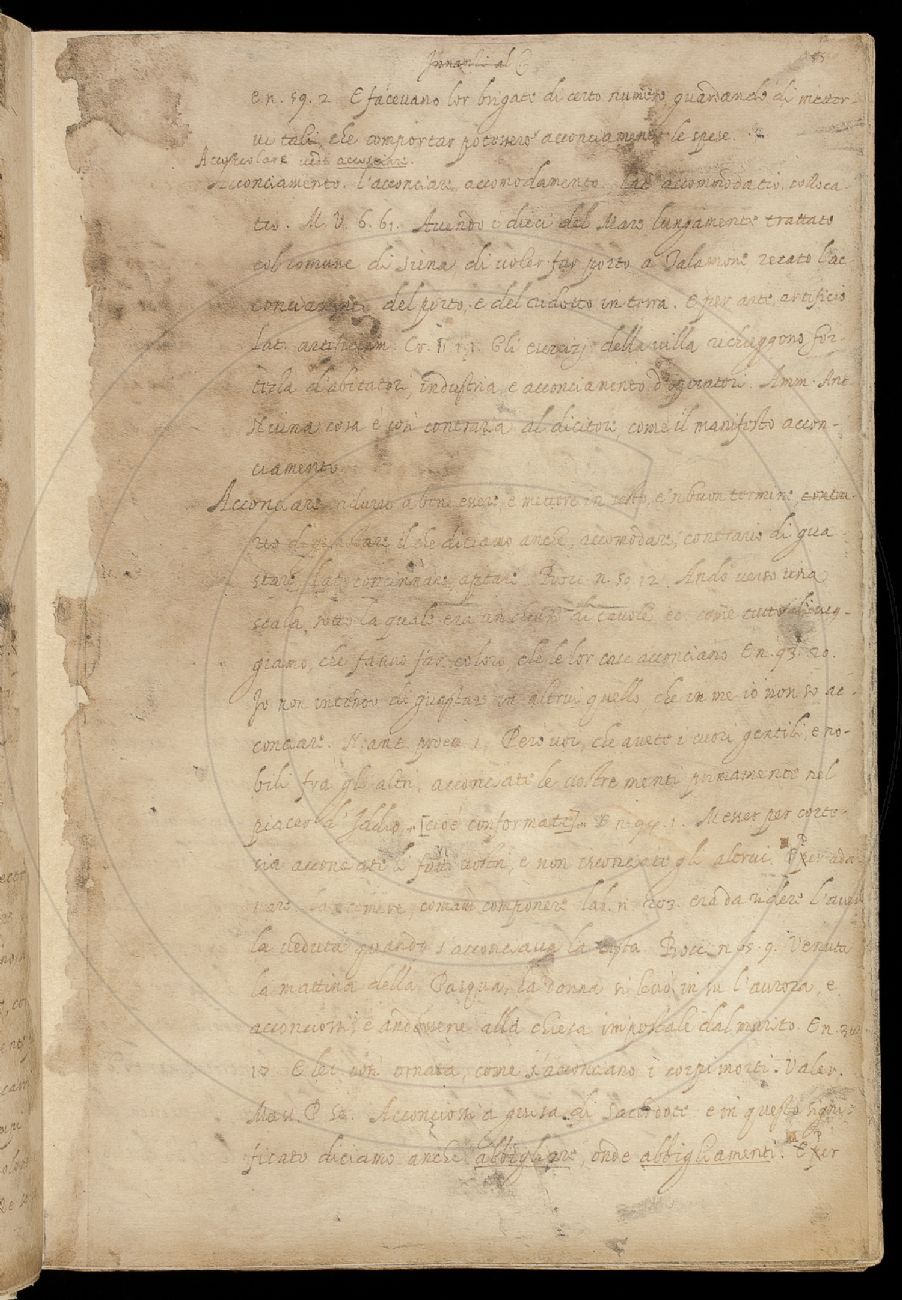 Innanzi al C
E n. 59. 2. E facevano lor brigate di certo numero guardando di metter
vi tali, che comportar potessero acconciamente le spese.
vedi
Acconciamento. l'acconciare, accomodamento. Lat. accommodatio, colloca-
tio. M. V. 6. 61. Avendo i dieci del Mare lungamente trattato
col comune di Siena di voler far porto a Talamone recato l'ac-
conciamento del porto, e del ridotto in terra. E per arte, artificio
Lat. artificium. Cr. della villa richieggono for-
tezza d'abitatori, industria, e acconciamento d' Amm. Ant.
Niuna cosa è così contraria al dicitore, come il manifesto accon-
ciamento.
Acconciare ridurre a ben essere e mettere in sesto, e 'n buon termine contra-
rio di il che diciamo anche, accomodare, contrario di gua-
stare, Lat. concinnare, aptare. Bocc. n. 50. 12. Andò verso una
scala, sotto la quale era un di tavole ec. come tutto dì veg-
giamo, che fanno far coloro, che le lor case acconciano. E n. 93. 20.
Io non intendo di guastare in altrui quello, che in me io non so ac-
conciare. N. ant. proem. 1. Però voi, che avete i cuori gentili, e no-
bili fra gli altri, acconciate le vostre menti primamente nel
piacer d'Iddio, [cioè conformate]. E n. 94. 1. Messer per corte-
sia acconciate i fatti vostri, e non isconciate gli altrui. Per ador-
nare componere Lab. n. 203. era da ridere l'aver-
la veduta quando s'acconciava la testa. Bocc. n. 65. 9. Venuta
la mattina della Pasqua, la donna si levò in su l'aurora, e
acconciossi e andossene alla chiesa impostale dal marito. E n.
17. E lei così ornata, come s'acconciano i corpi morti. Valer.
Mass. P. S. Acconciossi a guisa di sacerdote e in questo signi-
ficato diciamo anche abbigliare, onde abbigliamenti. E per